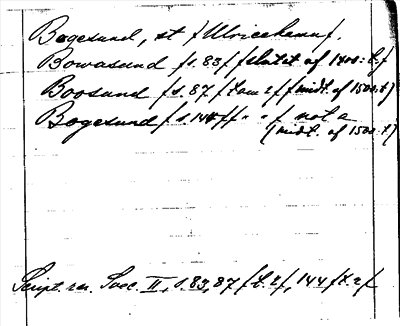 Bogesund, st / Ulricehamn /.
Bowasund / s. 83 / / slutet af 1400: t. /
Boosund / s. 87 / t. 2 / / midt. af 1500. t /
Bogesund / s. 144 / / " " / not a
/ midt. af 1500. t /
Script. rer. Svec. II, s. 83, 87 / t. 2 /, 144 / t. 2 /